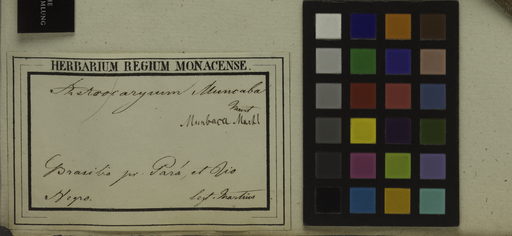 MLUNG
HERBARIUM REGIUM MONACENSE.
Astrocaryum Muncaba
Munbaca Martl
Brasilia pr. Pará, et Rio
Negro. legt. Martius